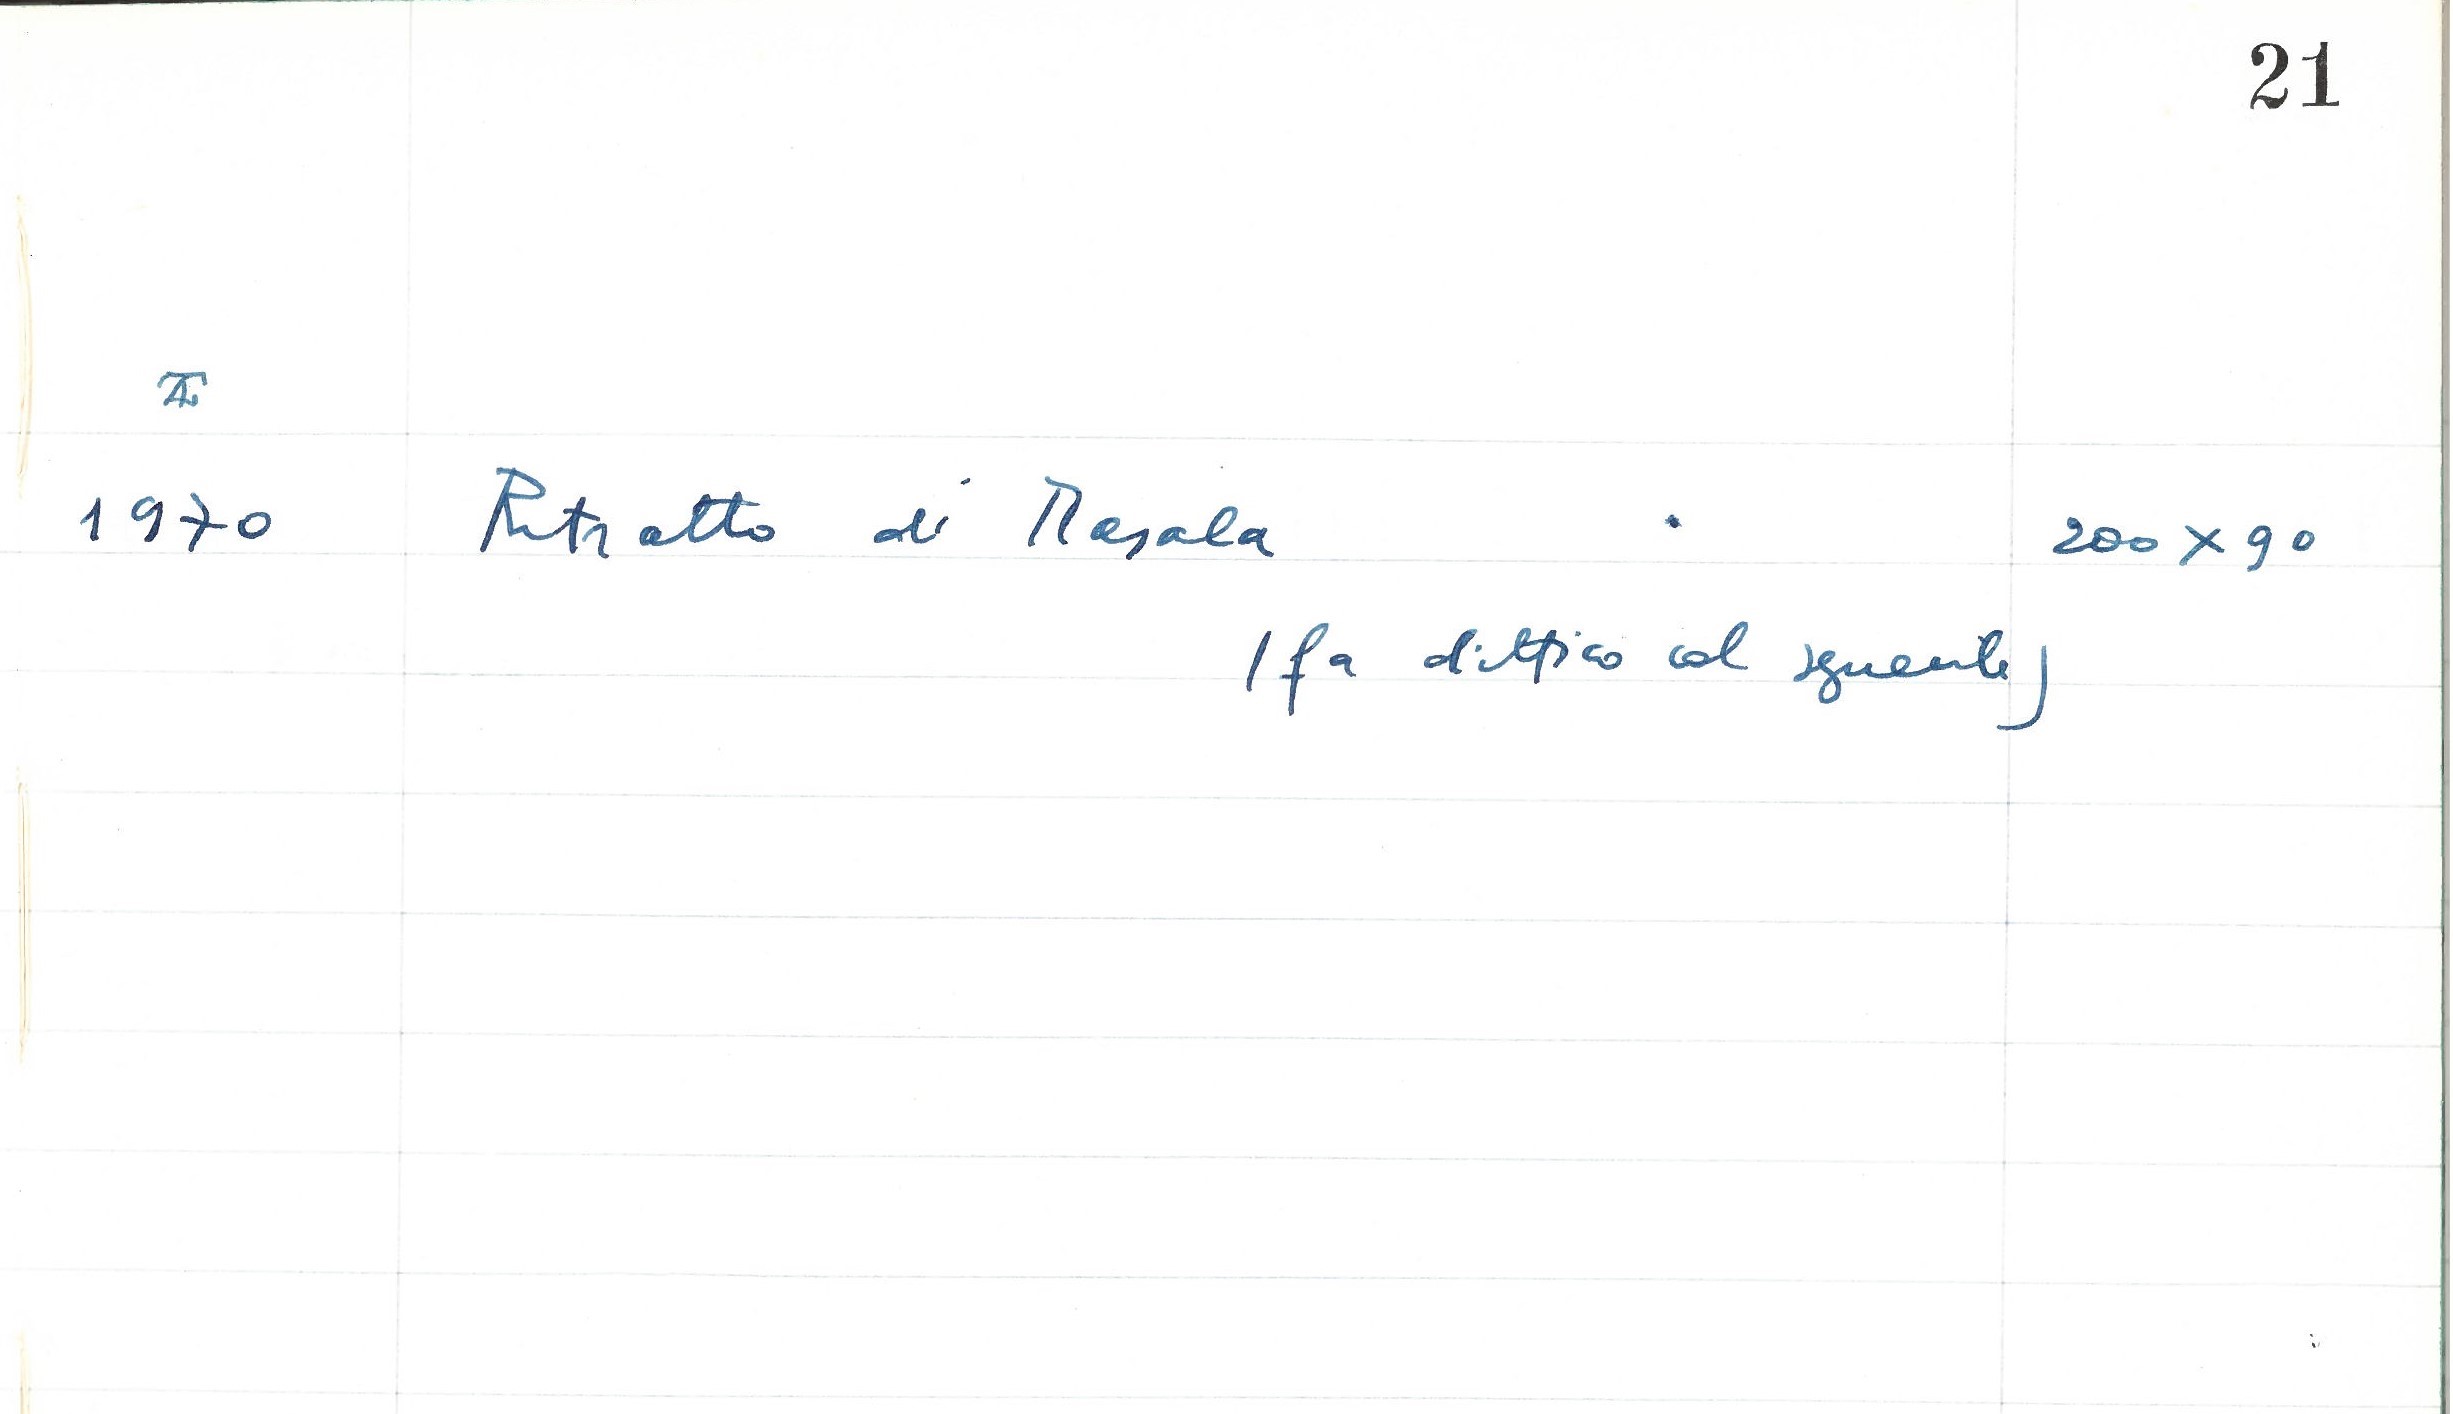 21
II
1970 Ritratto di Masala 200 x 90
(fa dittico col seguente)